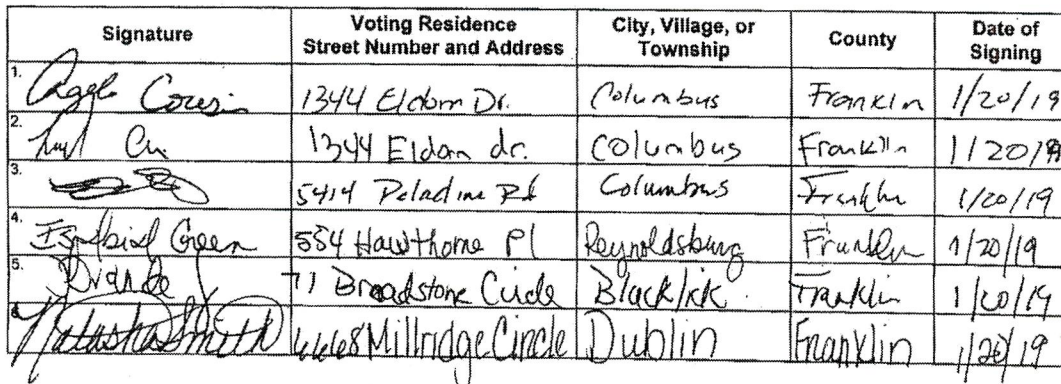 Signature Voting Residence Street Number and Address City, Village, or Township County Date of Signing
1. 1344 Eldon Dr. Columbus Franklin 1/20/19
2. 1344 Eldon dr. Columbus Franklin 1/20/19
3. 5414 Paladine Rd Columbus Franklin 1/20/19
4. Green 554 Hawthorne Pl Reynoldsburg Franklin 1/20/19
5. 71 Broadstone Circle Blacklick Franklin 1/20/19
6. Natasha Smith 6668 Millridge Circle Dublin Franklin 1/20/19